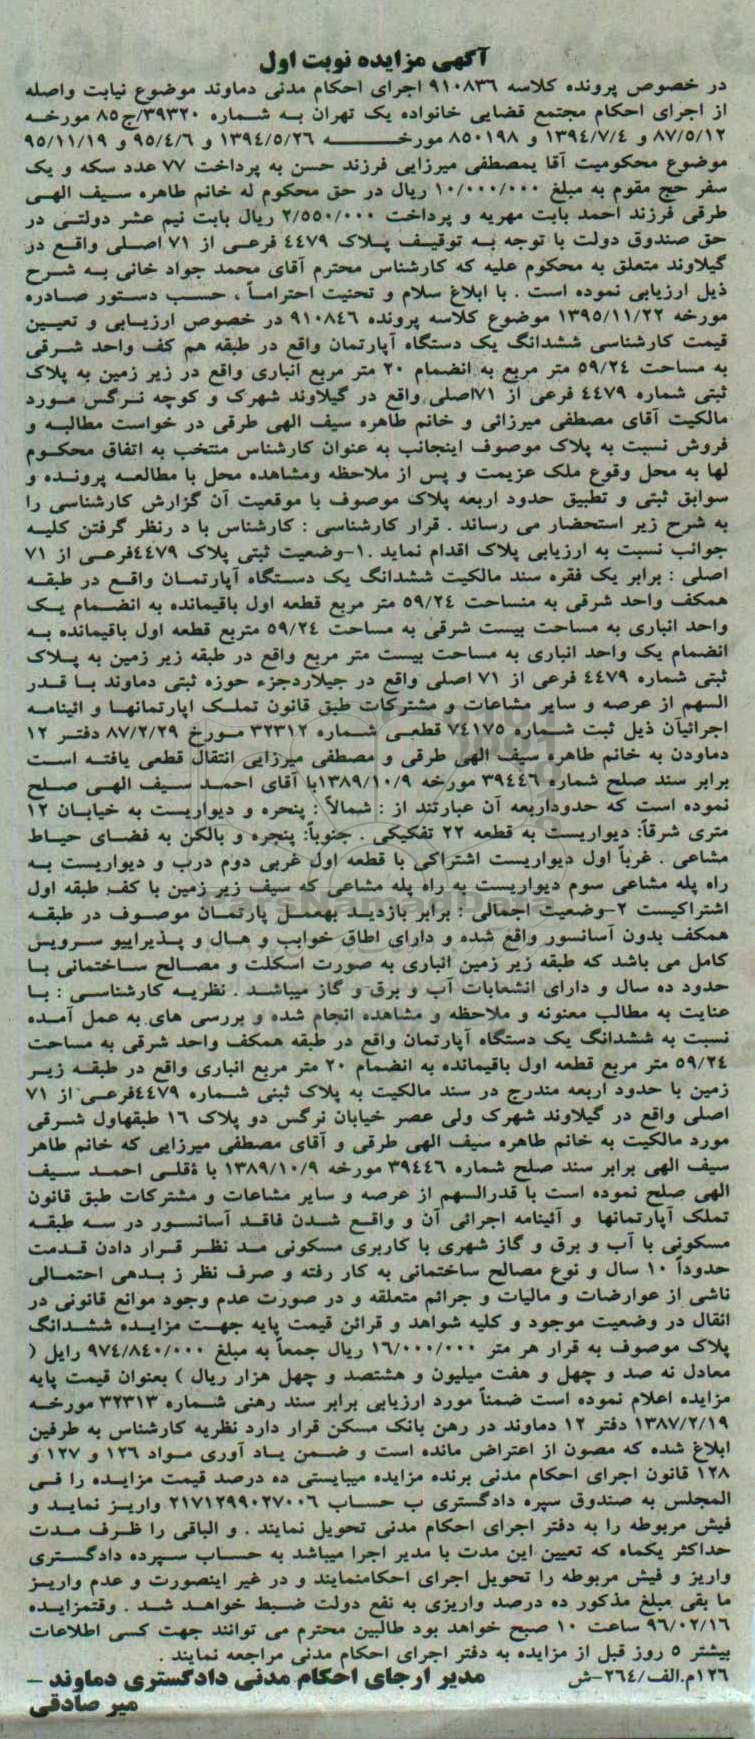 آگهی مزایده نوبت اول
در خصوص پرونده کلاسه ۹۱۰۸۳۶ اجرای احکام مدنی دماوند موضوع نیابت واصله
از اجرای احکام مجتمع قضایی خانواده یک تهران به شماره ۳۹۳۲۰/ج۸۵ مورخه
۸۷/۵/۱۲ و ۱۳۹٤/۷/٤ و ۸۵۰۱۹۸ مورخه ۱۳۹٤/۵/۲۶ و ۹۵/٤/۶ و ۹۵/۱۱/۱۹
موضوع محکومیت آقا یمصطفی میرزایی فرزند حسن به پرداخت ۷۷ عدد سکه و یک
سفر حج مقوم به مبلغ ۱۰/۰۰۰/۰۰۰ ریال در حق محکوم له خانم طاهره سیف الهی
طرقی فرزند احمد بابت مهریه و پرداخت ۲/۵۵۰/۰۰۰ ریال بابت نیم عشر دولتی در
حق صندوق دولت با توجه به توقیف پلاک ٤٤۷۹ فرعی از ۷۱ اصلی واقع در
گیلاوند متعلق به محکوم علیه که کارشناس محترم آقای محمد جواد خانی به شرح
ذیل ارزیابی نموده است . با ابلاغ سلام و تحنیت احتراماً ، حسب دستور صادره
مورخه ۱۳۹۵/۱۱/۲۲ موضوع کلاسه پرونده ۹۱۰۸٤۶ در خصوص ارزیابی و تعیین
قیمت کارشناسی ششدانگ یک دستگاه آپارتمان واقع در طبقه هم کف واحد شرقی
به مساحت ۵۹/۲٤ متر مربع به انضمام ۲۰ متر مربع انباری واقع در زیر زمین به پلاک
ثبتی شماره ٤٤۷۹ فرعی از ۷۱اصلی واقع در گیلاوند شهرک و کوچه نرگس مورد
مالکیت آقای مصطفی میرزائی و خانم طاهره سیف الهی طرقی در خواست مطالبه و
فروش نسبت به پلاک موصوف اینجانب به عنوان کارشناس منتخب به اتفاق محکوم
لها به محل وقوع ملک عزیمت و پس از ملاحظه ومشاهده محل با مطالعه پرونده و
سوابق ثبتی و تطبیق حدود اربعه پلاک موصوف با موقعیت آن گزارش کارشناسی را
به شرح زیر استحضار می رساند . قرار کارشناسی : کارشناس با د رنظر گرفتن کلیه
جوانب نسبت به ارزیابی پلاک اقدام نماید .۱-وضعیت ثبتی پلاک ٤٤۷۹فرعی از ۷۱
اصلی : برابر یک فقره سند مالکیت ششدانگ یک دستگاه آپارتمان واقع در طبقه
همکف واحد شرقی به منساحت ۵۹/۲٤ متر مربع قطعه اول باقیمانده به انضمام یک
واحد انباری به مساحت بیست شرقی به مساحت ۵۹/۲٤ متربع قطعه اول باقیمانده به
انضمام یک واحد انباری به مساحت بیست متر مربع واقع در طبقه زیر زمین به پلاک
ثبتی شماره ٤٤۷۹ فرعی از ۷۱ اصلی واقع در جیلاردجزء حوزه ثبتی دماوند با قدر
السهم از عرصه و سایر مشاعات و مشترکات طبق قانون تملک اپارتمانها و ائینامه
اجرائیآن ذیل ثبت شماره ۷٤۱۷۵ قطعی شماره ۳۲۳۱۲ مورخ ۸۷/۲/۲۹ دفتر ۱۲
دماودن به خانم طاهره سیف الهی طرقی و مصطفی میرزایی انتقال قطعی یافته است
برابر سند صلح شماره ۳۹٤٤۶ مورخه ۱۳۸۹/۱۰/۹با آقای احمد سیف الهی صلح
نموده است که حدوداربعه آن عبارتند از : شمالاً : پنجره و دیواریست به خیابان ۱۲
متری شرقاً: دیواریست به قطعه ۲۲ تفکیکی . جنوباً: پنجره و بالکن به فضای حیاط
مشاعی . غرباً اول دیواریست اشتراکی با قطعه اول غربی دوم درب و دیواریست به
راه پله مشاعی سوم دیواریست به راه پله مشاعی که سیف زیر زمین با کف طبقه اول
اشتراکیست ۲-وضعیت اجمالی : برابر بازدید بهعمل پارتمان موصوف در طبقه
همکف بدون آسانسور واقع شده و دارای اطاق خوابب و هال و پذیراییو سرویس
کامل می باشد که طبقه زیر زمین انباری به صورت اسکلت و مصالح ساختمانی با
حدود ده سال و دارای انشعابات آب و برق و گاز میباشد . نظریه کارشناسی : با
عنایت به مطالب معنونه و ملاحظه و مشاهده انجام شده و بررسی های به عمل آمده
نسبت به ششدانگ یک دستگاه آپارتمان واقع در طبقه همکف واحد شرقی به مساحت
۵۹/۲٤ متر مربع قطعه اول باقیمانده به انضمام ۲۰ متر مربع انباری واقع در طبقه زیر
زمین با حدود اربعه مندرج در سند مالکیت به پلاک ثبتی شماره ٤٤۷۹فرعی از ۷۱
اصلی واقع در گیلاوند شهرک ولی عصر خیابان نرگس دو پلاک ۱۶ طبقهاول شرقی
مورد مالکیت به خانم طاهره سیف الهی طرقی و آقای مصطفی میرزایی که خانم طاهر
سیف الهی برابر سند صلح شماره ۳۹٤٤۶ مورخه ۱۳۸۹/۱۰/۹ با احمد سیف
الهی صلح نموده است با قدرالسهم از عرصه و سایر مشاعات و مشترکات طبق قانون
تملک آپارتمانها و آئینامه اجرائی آن و واقع شدن فاقد آسانسور در سه طبقه
مسکونی با آب و برق و گاز شهری با کاربری مسکونی مد نظر قرار دادن قدمت
حدوداً ۱۰ سال و نوع مصالح ساختمانی به کار رفته و صرف نظر ز بدهی احتمالی
ناشی از عوارضات و مالیات و جرائم متعلقه و در صورت عدم وجود موانع قانونی در
انقال در وضعیت موجود و کلیه شواهد و قرائن قیمت پایه جهت مزایده ششدانگ
پلاک موصوف به قرار هر متر ۱۶/۰۰۰/۰۰۰ ریال جمعاً به مبلغ ۹۷٤/۸٤۰/۰۰۰ رایل (
معادل نه صد و چهل و هفت میلیون و هشتصد و چهل هزار ریال ) بعنوان قیمت پایه
مزایده اعلام نموده است ضمناً مورد ارزیابی برابر سند رهنی شماره ۳۲۳۱۳ مورخه
۱۳۸۷/۲/۱۹ دفتر ۱۲ دماوند در رهن بانک مسکن قرار دارد نظریه کارشناس به طرفین
ابلاغ شده که مصون از اعتراض مانده است و ضمن یاد آوری مواد ۱۲۶ و ۱۲۷ و
۱۲۸ قانون اجرای احکام مدنی برنده مزایده میبایستی ده درصد قیمت مزایده را فی
المجلس به صندوق سپره دادگستری ب حساب ۲۱۷۱۲۹۹۰۲۷۰۰۶ واریز نماید و
فیش مربوطه را به دفتر اجرای احکام مدنی تحویل نمایند . و الباقی را ظرف مدت
حداکثر یکماه که تعیین این مدت با مدیر اجرا میباشد به حساب سپرده دادگستری
واریز و فیش مربوطه را تحویل اجرای احکامنمایند و در غیر اینصورت و عدم واریز
ما بقی مبلغ مذکور ده درصد واریزی به نفع دولت ضبط خواهد شد . وقتمزایده
۹۶/۰۲/۱۶ ساعت ۱۰ صبح خواهد بود طالبین محترم می توانند جهت کسی اطلاعات
بیشتر ۵ روز قبل از مزایده به دفتر اجرای احکام مدنی مراجعه نمایند .
۱۲۶م.الف/۲۶٤-ش
مدیر ارجای احکام مدنی دادگستری دماوند –
میر صادقی
ParsNamadData